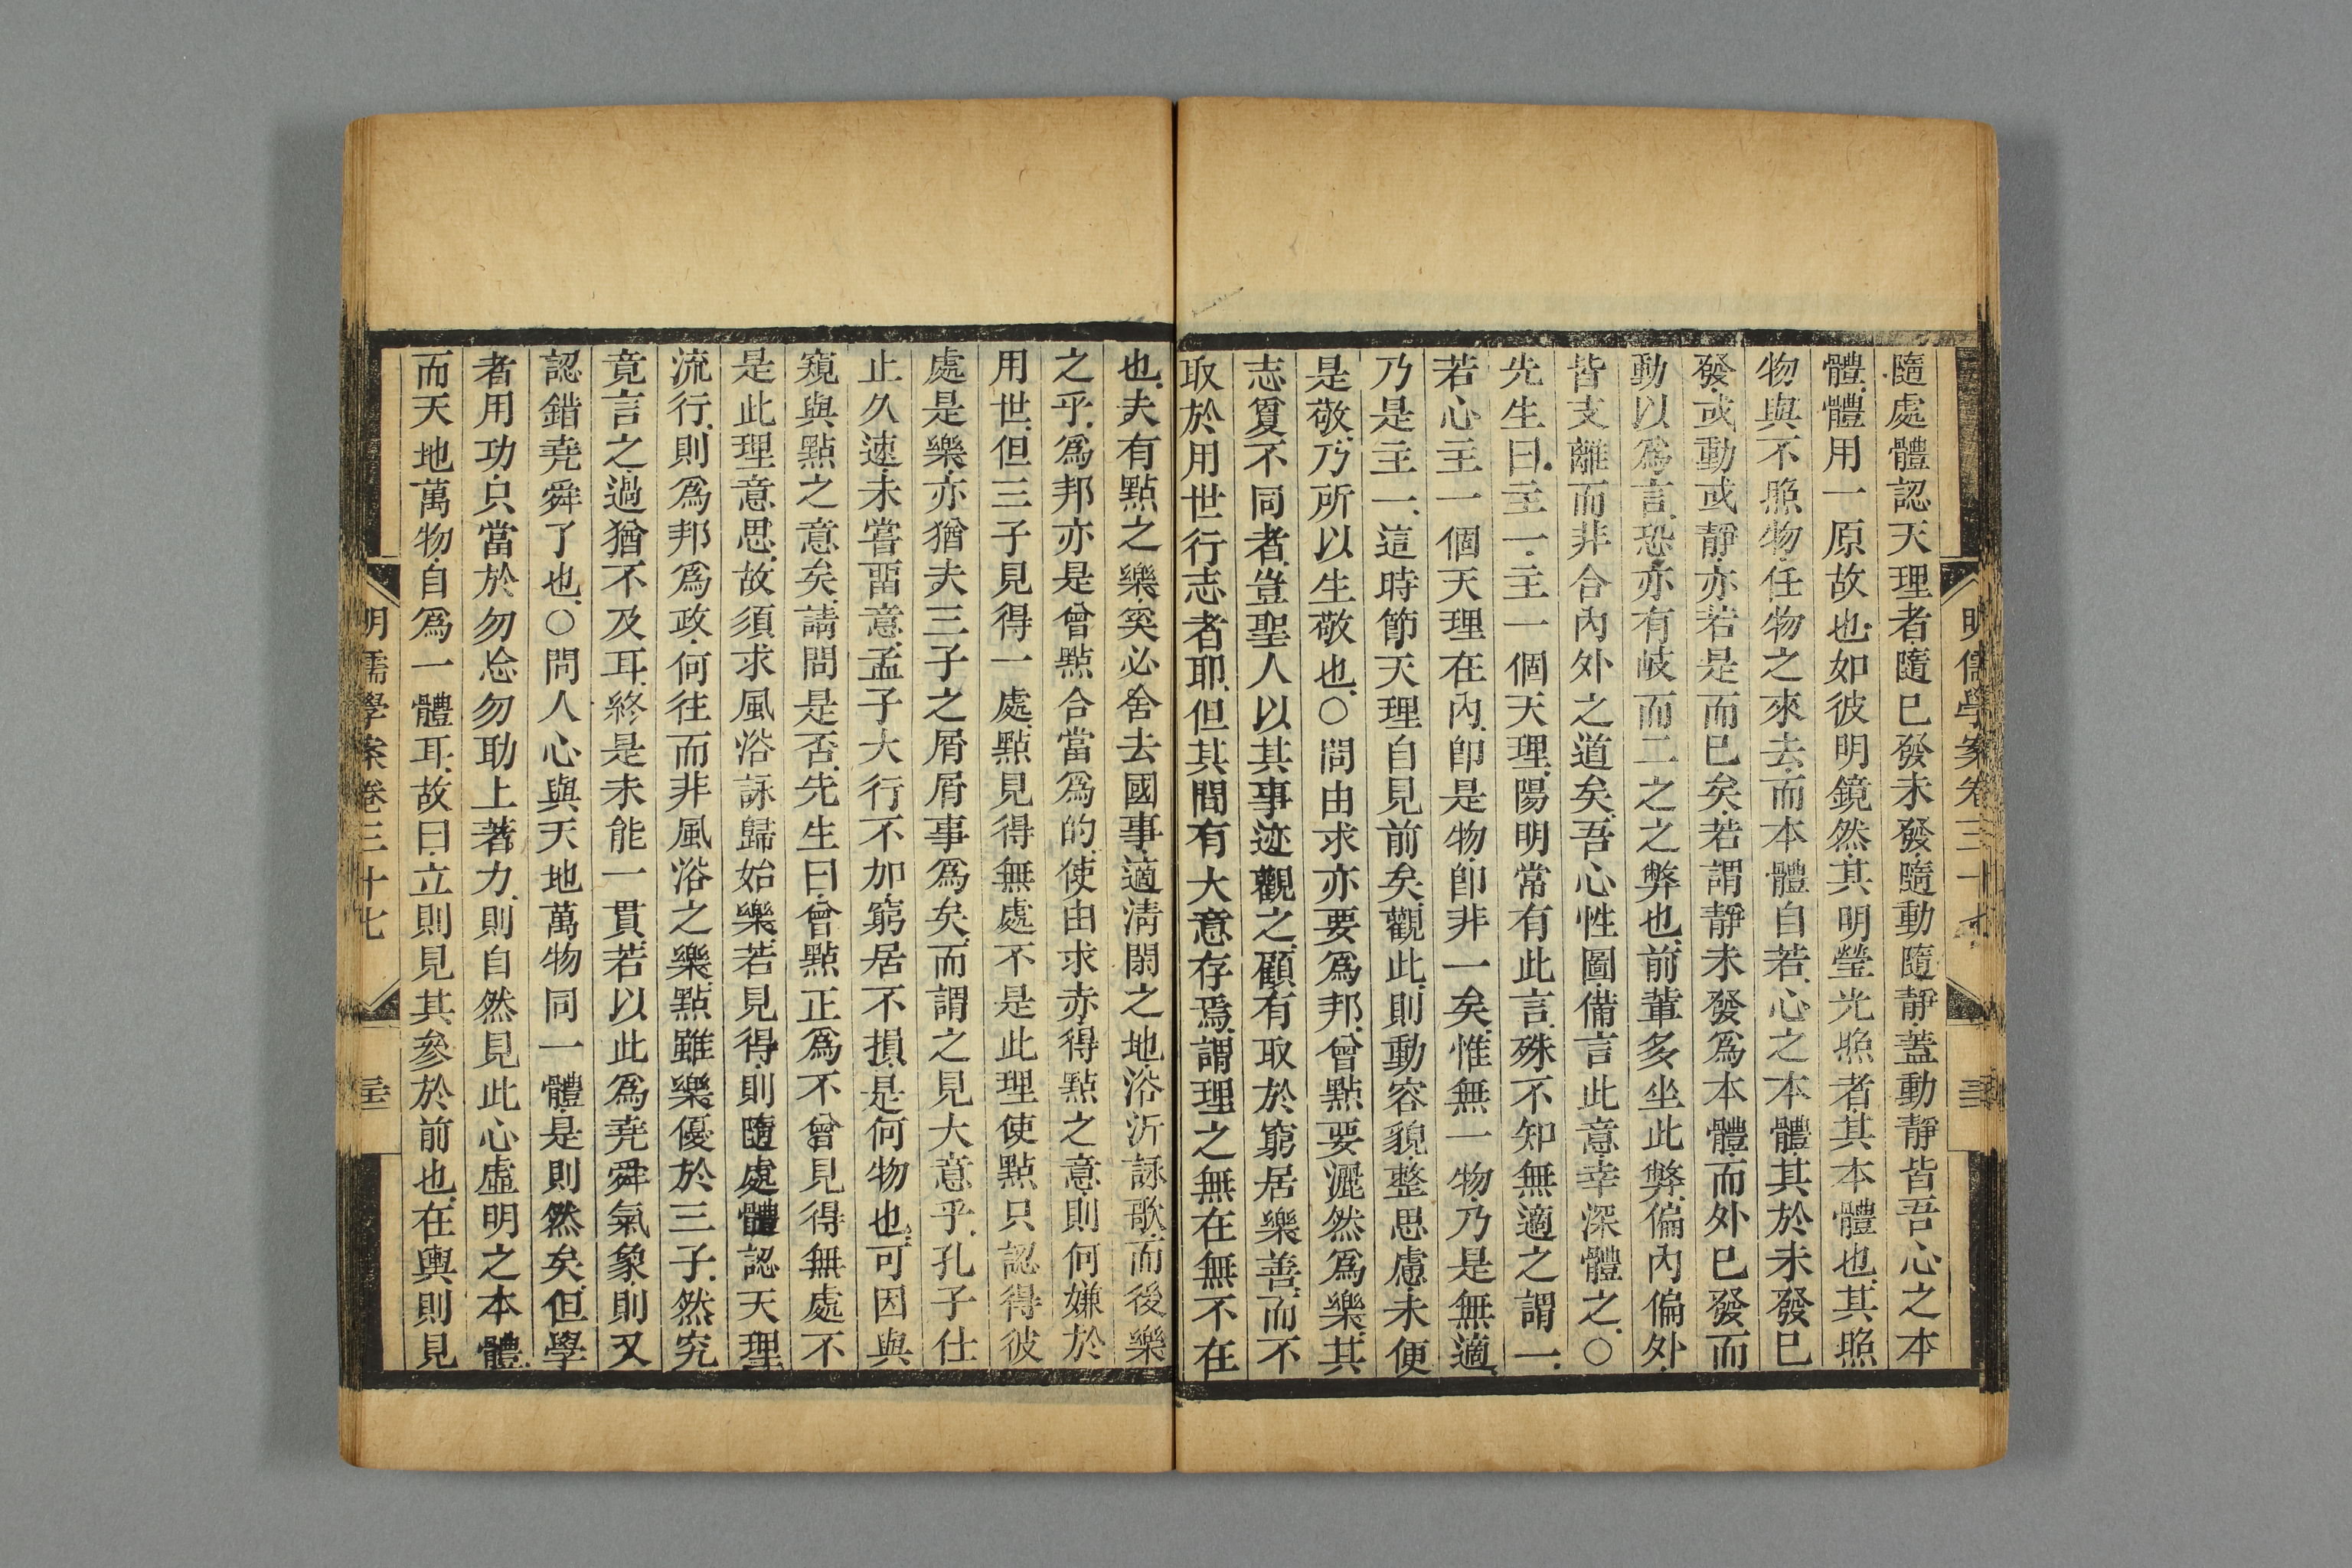 明儒學案卷三十七
隨處體認天理者隨已發未發隨動隨靜蓋動靜皆吾心之本
體體用一原故也如彼明鏡然其明瑩光照者其本體也其照
物與不照物任物之來去而本體自若心之本體其於未發已
發或動或靜亦若是而已矣若謂靜未發爲本體而外已發而
動以爲言恐亦有岐而二之之弊也前輩多坐此弊偏內偏外
皆支離而非合內外之道矣吾心性圖備言此意幸深體之○
先生曰主一主一個天理陽明常有此言殊不知無適之謂一
若心主一個天理在內卽是物卽非一矣惟無一物乃是無適
乃是主一這時節天理自見前矣觀此則動容貌整思慮未便
是敬乃所以生敬也○問由求亦要爲邦曾點要灑然爲樂其
志夐不同者豈聖人以其事迹觀之顧有取於窮居樂善而不
取於用世行志者耶但其間有大意存焉謂理之無在無不在
也夫有點之樂奚必舍去國事適淸閒之地浴沂詠歌而後樂
之乎爲邦亦是曾點合當爲的使由求赤得點之意則何嫌於
用世但三子見得一處點見得無處不是此理使點只認得彼
處是樂亦猶夫三子之屑屑事爲矣而謂之見大意乎孔子仕
止久速未嘗畱意孟子大行不加窮居不損是何物也可因與
窺與點之意矣請問是否先生曰曾點正爲不曾見得無處不
是此理意思故須求風浴詠歸始樂若見得則隨處體認天理
流行則爲邦爲政何往而非風浴之樂點雖樂優於三子然究
竟言之過猶不及耳終是未能一貫若以此爲堯舜氣象則又
認錯堯舜了也○問人心與天地萬物同一體是則然矣但學
者用功只當於勿忘勿助上著力則自然見此心虛明之本體
而天地萬物自爲一體耳故曰立則見其參於前也在輿則見
明儒學案卷三十七